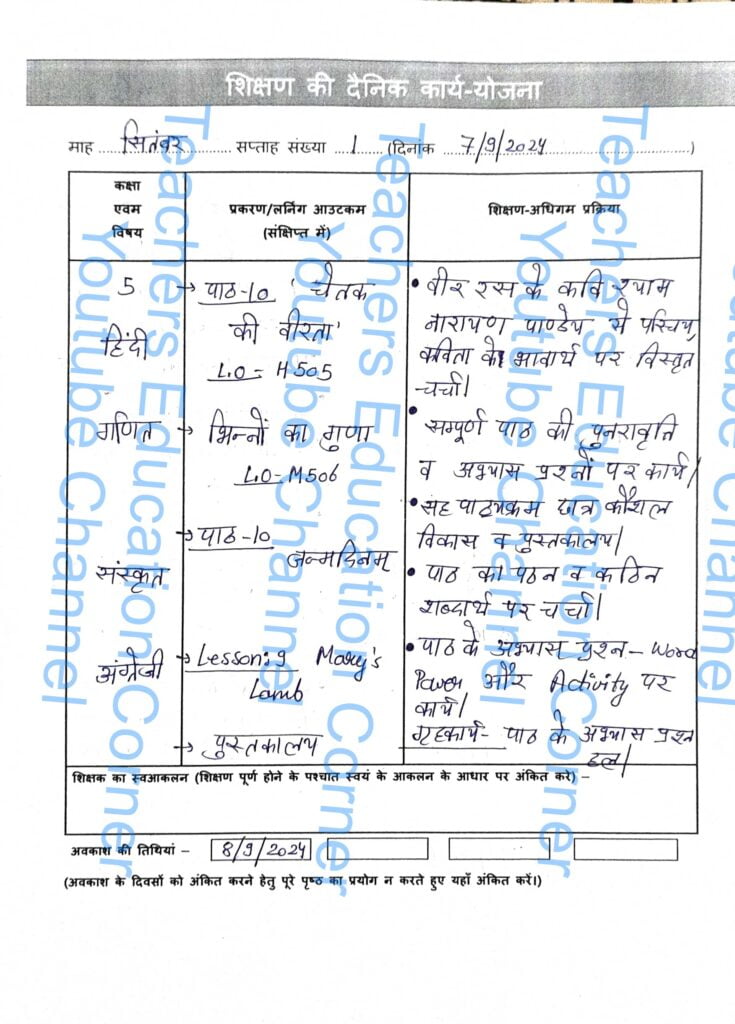 शिक्षण की दैनिक कार्य-योजना
माह सितंबर सप्ताह संख्या 1 (दिनांक 7/9/2024)
कक्षा
एवम
विषय
प्रकरण/लर्निंग आउटकम
(संक्षिप्त में)
शिक्षण-अधिगम प्रक्रिया
5
हिंदी
→ पाठ-10 'चेतक
की वीरता'
L.O - H505
• वीर रस के कवि श्याम
नारायण पाण्डेय से परिचय,
कविता के भावार्थ पर विस्तृत
चर्चा।
गणित
→ भिन्नों का गुणा
L.O - M506
• सम्पूर्ण पाठ की पुनरावृति
व अभ्यास प्रश्नों पर कार्य।
• सह पाठ्यक्रम छात्र कौशल
विकास व पुस्तकालय।
संस्कृत
→ पाठ-10
जन्मदिनम्
• पाठ का पठन व कठिन
शब्दार्थ पर चर्चा।
अंग्रेजी
→ Lesson:9 Mary's
Lamb
• पाठ के अभ्यास प्रश्न - Word
Power और Activity पर
कार्य।
→ पुस्तकालय
गृहकार्य- पाठ के अभ्यास प्रश्न
हल।
शिक्षक का स्वआकलन (शिक्षण पूर्ण होने के पश्चात स्वयं के आकलन के आधार पर अंकित करे) –
अवकाश की तिथियां – 8/9/2024
(अवकाश के दिवसों को अंकित करने हेतु पूरे पृष्ठ का प्रयोग न करते हुए यहाँ अंकित करें।)
Teachers Education Corner
Youtube Channel
Teachers Education Corner
Youtube Channel
Teachers Education Corner
Youtube Channel